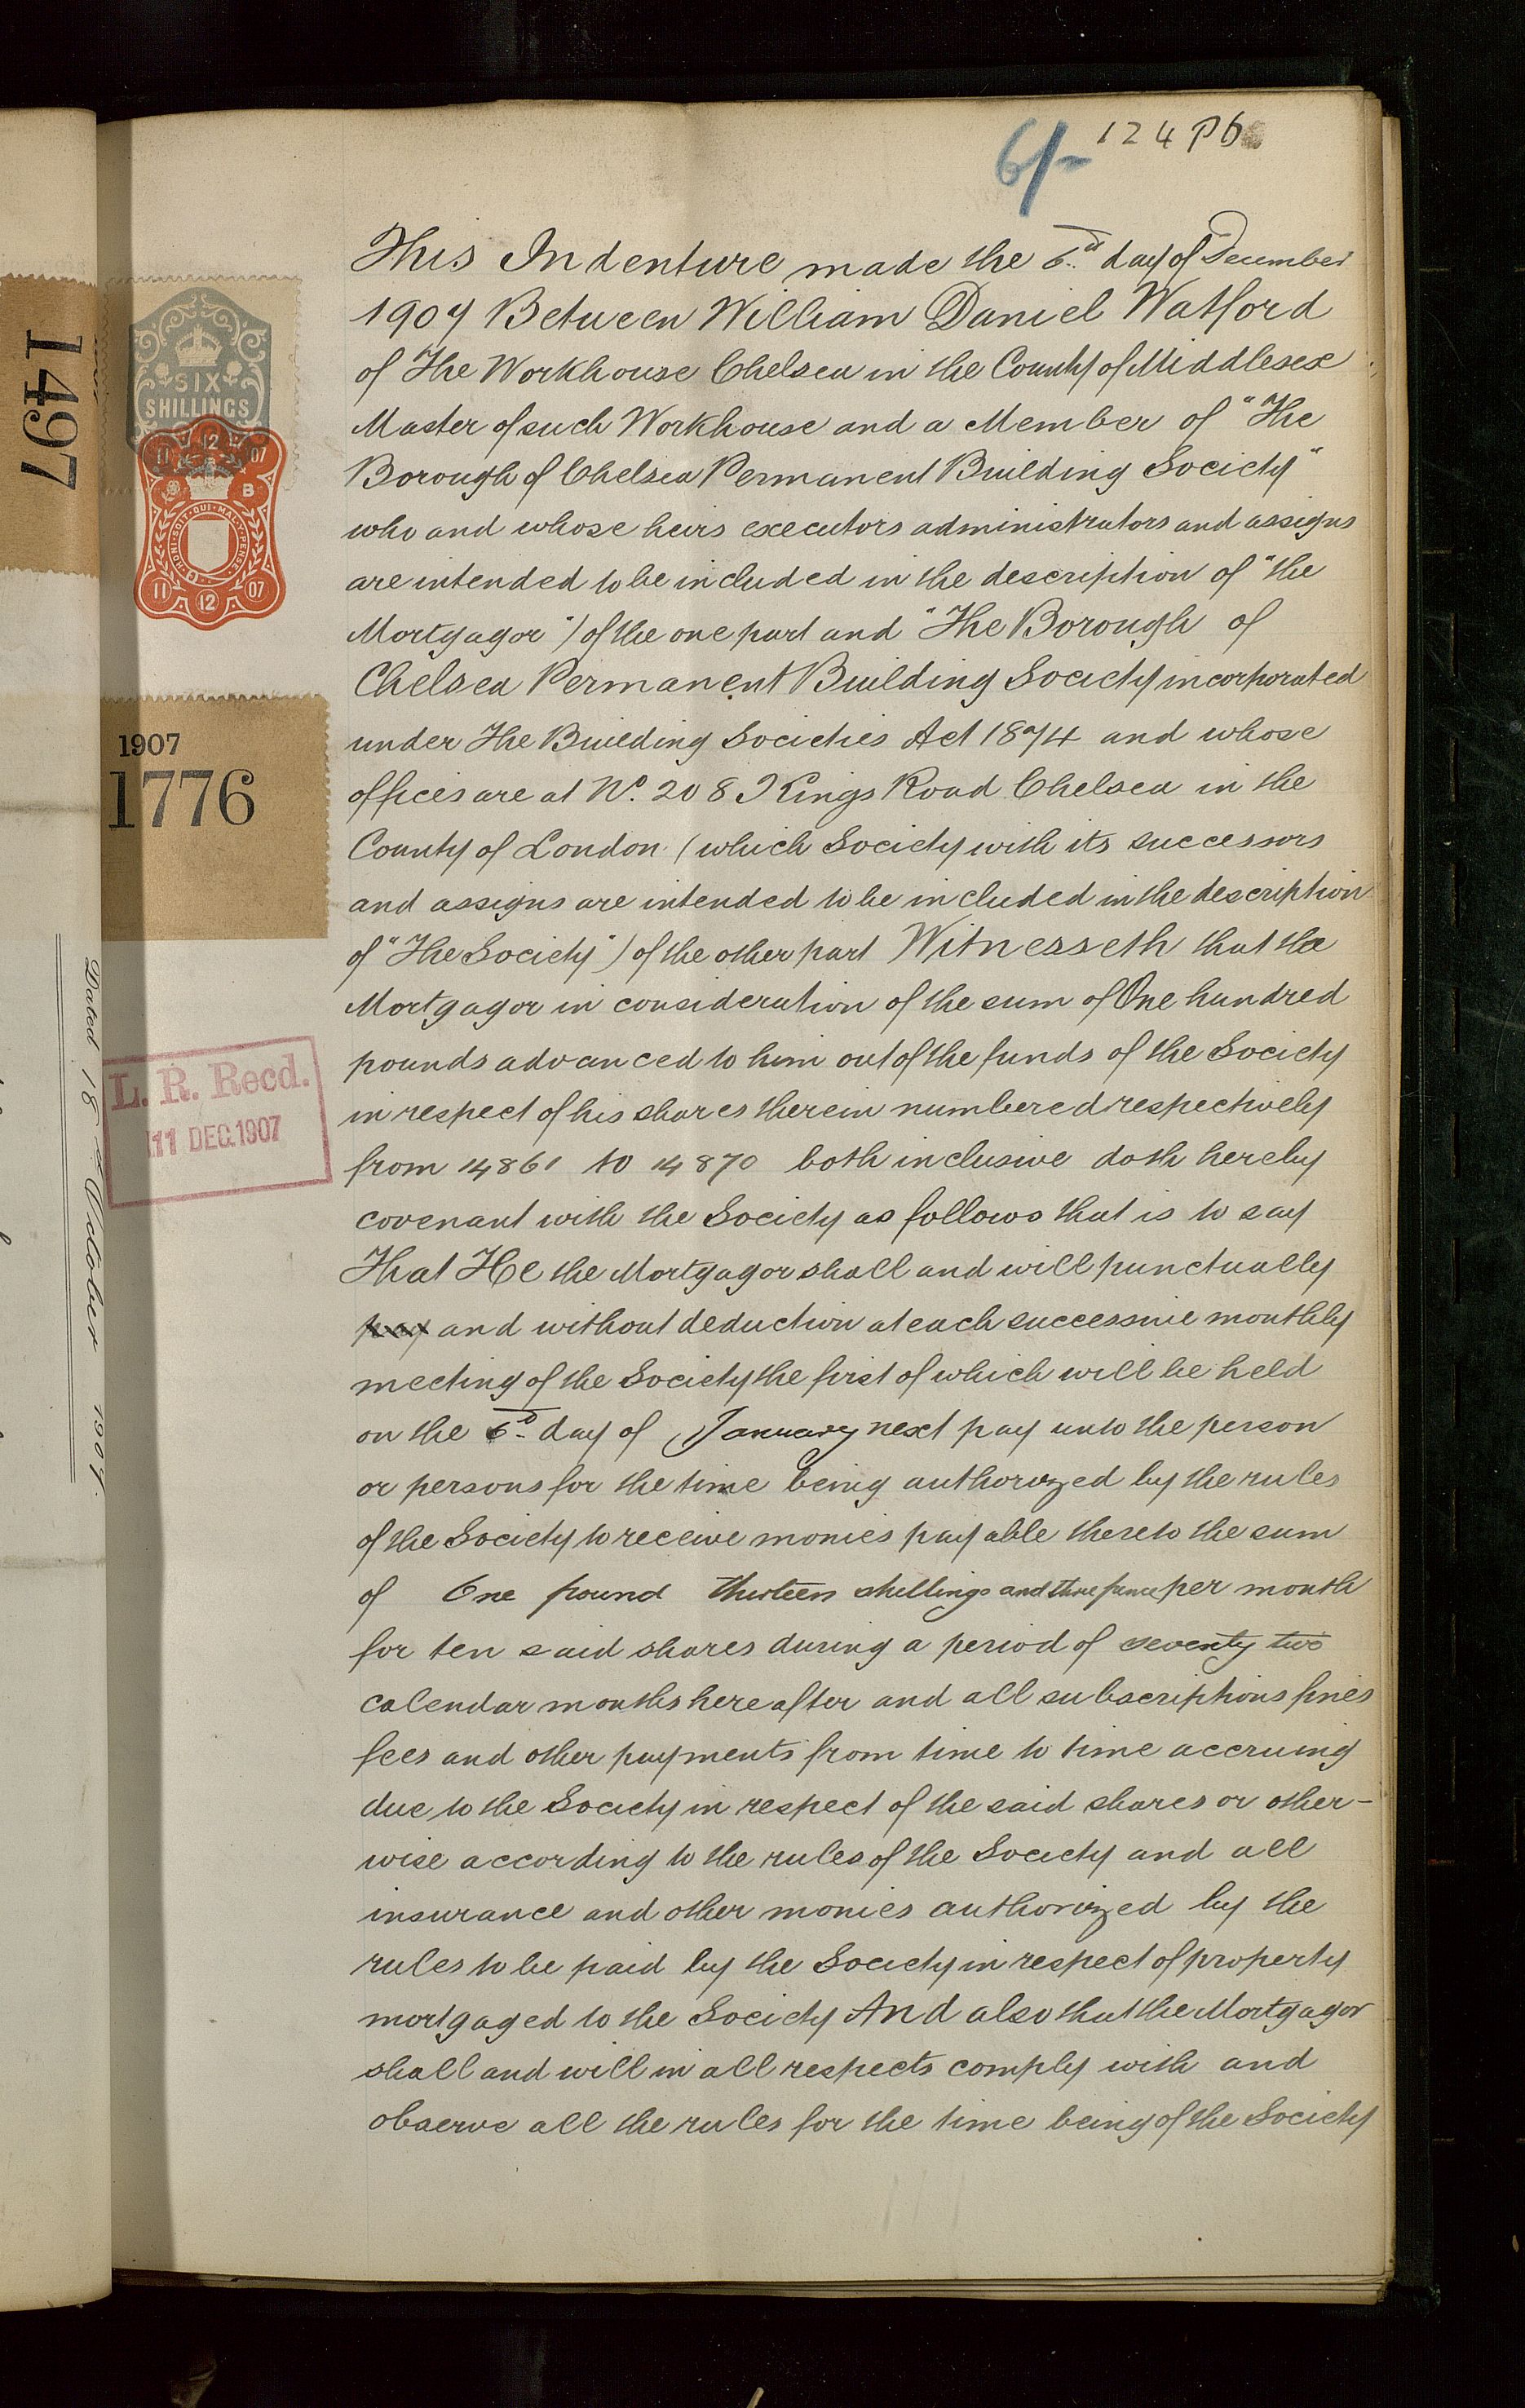 6/-
124 Pb
This Indenture made the 6th day of December
1907 Between William Daniel Watford
of The Workhouse Chelsea in the County of Middlesex
Master of such Workhouse and a Member of "The
Borough of Chelsea Permanent Building Society"
who and whose heirs executors administrators and assigns
are intended to be included in the description of "the
Mortgagor") of the one part and "The Borough of
Chelsea Permanent Building Society incorporated
under The Building Societies Act 1874 and whose
offices are at No. 208 Kings Road Chelsea in the
County of London (which Society with its successors
and assigns are intended to be included in the description
of "The Society") of the other part Witnesseth that the
Mortgagor in consideration of the sum of One hundred
pounds advanced to him out of the funds of the Society
in respect of his shares therein numbered respectively
from 14861 to 14870 both inclusive doth hereby
covenant with the Society as follows that is to say
That He the Mortgagor shall and will punctually
pay and without deduction at each successive monthly
meeting of the Society the first of which will be held
on the 6th day of January next pay unto the person
or persons for the time being authorized by the rules
of the Society to receive monies payable thereto the sum
of One pound thirteen shillings and three pence per month
for ten said shares during a period of seventy two
calendar months hereafter and all subscriptions fines
fees and other payments from time to time accruing
due to the Society in respect of the said shares or other-
wise according to the rules of the Society and all
insurance and other monies authorized by the
rules to be paid by the Society in respect of property
mortgaged to the Society And also that the Mortgagor
shall and will in all respects comply with and
observe all the rules for the time being of the Society
SIX
SHILLINGS
11 12 07
B
HONI·SOIT·QUI·MAL·Y·PENSE
11 12 07
1907
1776
L. R. Recd.
11 DEC. 1907
1497
Dated 18th October 1907.